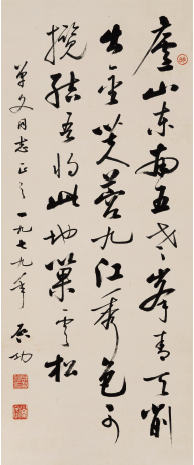 廬山東南五老峯青天削
出金芙蓉九江秀色可
攬結吾将此地巢雲松
文同志正之一九七九年啟功